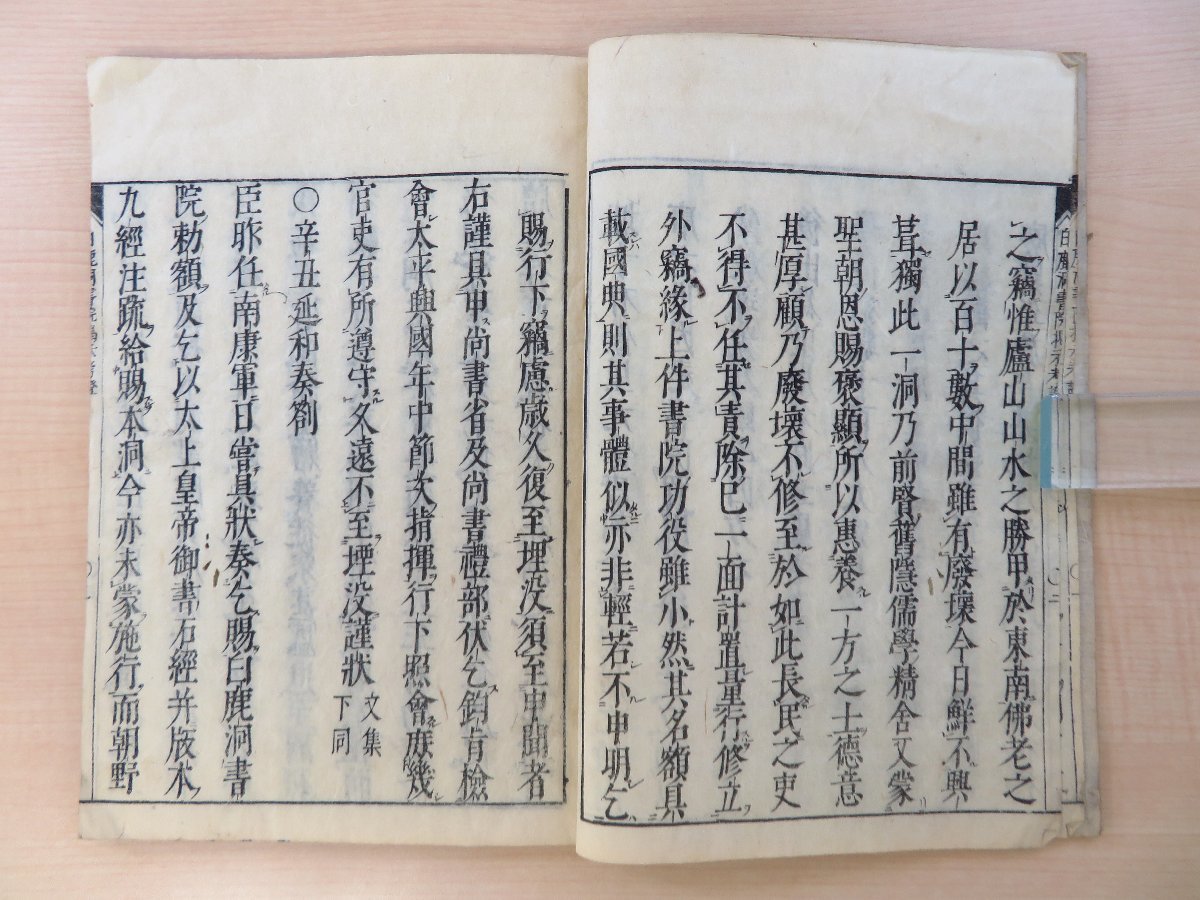 之竊惟廬山山水之勝甲於東南佛老之
居以百十數中間雖有廢壞今日鮮不興
葺獨此一洞乃前賢舊隱儒學精舍又蒙
聖朝恩賜褒顯所以惠養一方之士德意
甚厚顧乃廢壞不修至於如此長民之吏
不得不任其責除已一面計置量行修立
外竊緣上件書院功役雖小然其名額具
載國典則其事體似亦非輕若不申明乞
賜行下竊慮歲久復至埋没須至申聞者
右謹具申尚書省及尚書禮部伏乞鈞旨檢
會太平興國年中節次指揮行下照會庶幾
官吏有所遵守久遠不至堙没謹狀 文集下同
○辛丑延和奏劄
臣昨任南康軍日嘗具狀奏乞賜白鹿洞書
院勅額及乞以太上皇帝御書石經并版本
九經注疏給賜本洞今亦未蒙施行而朝野